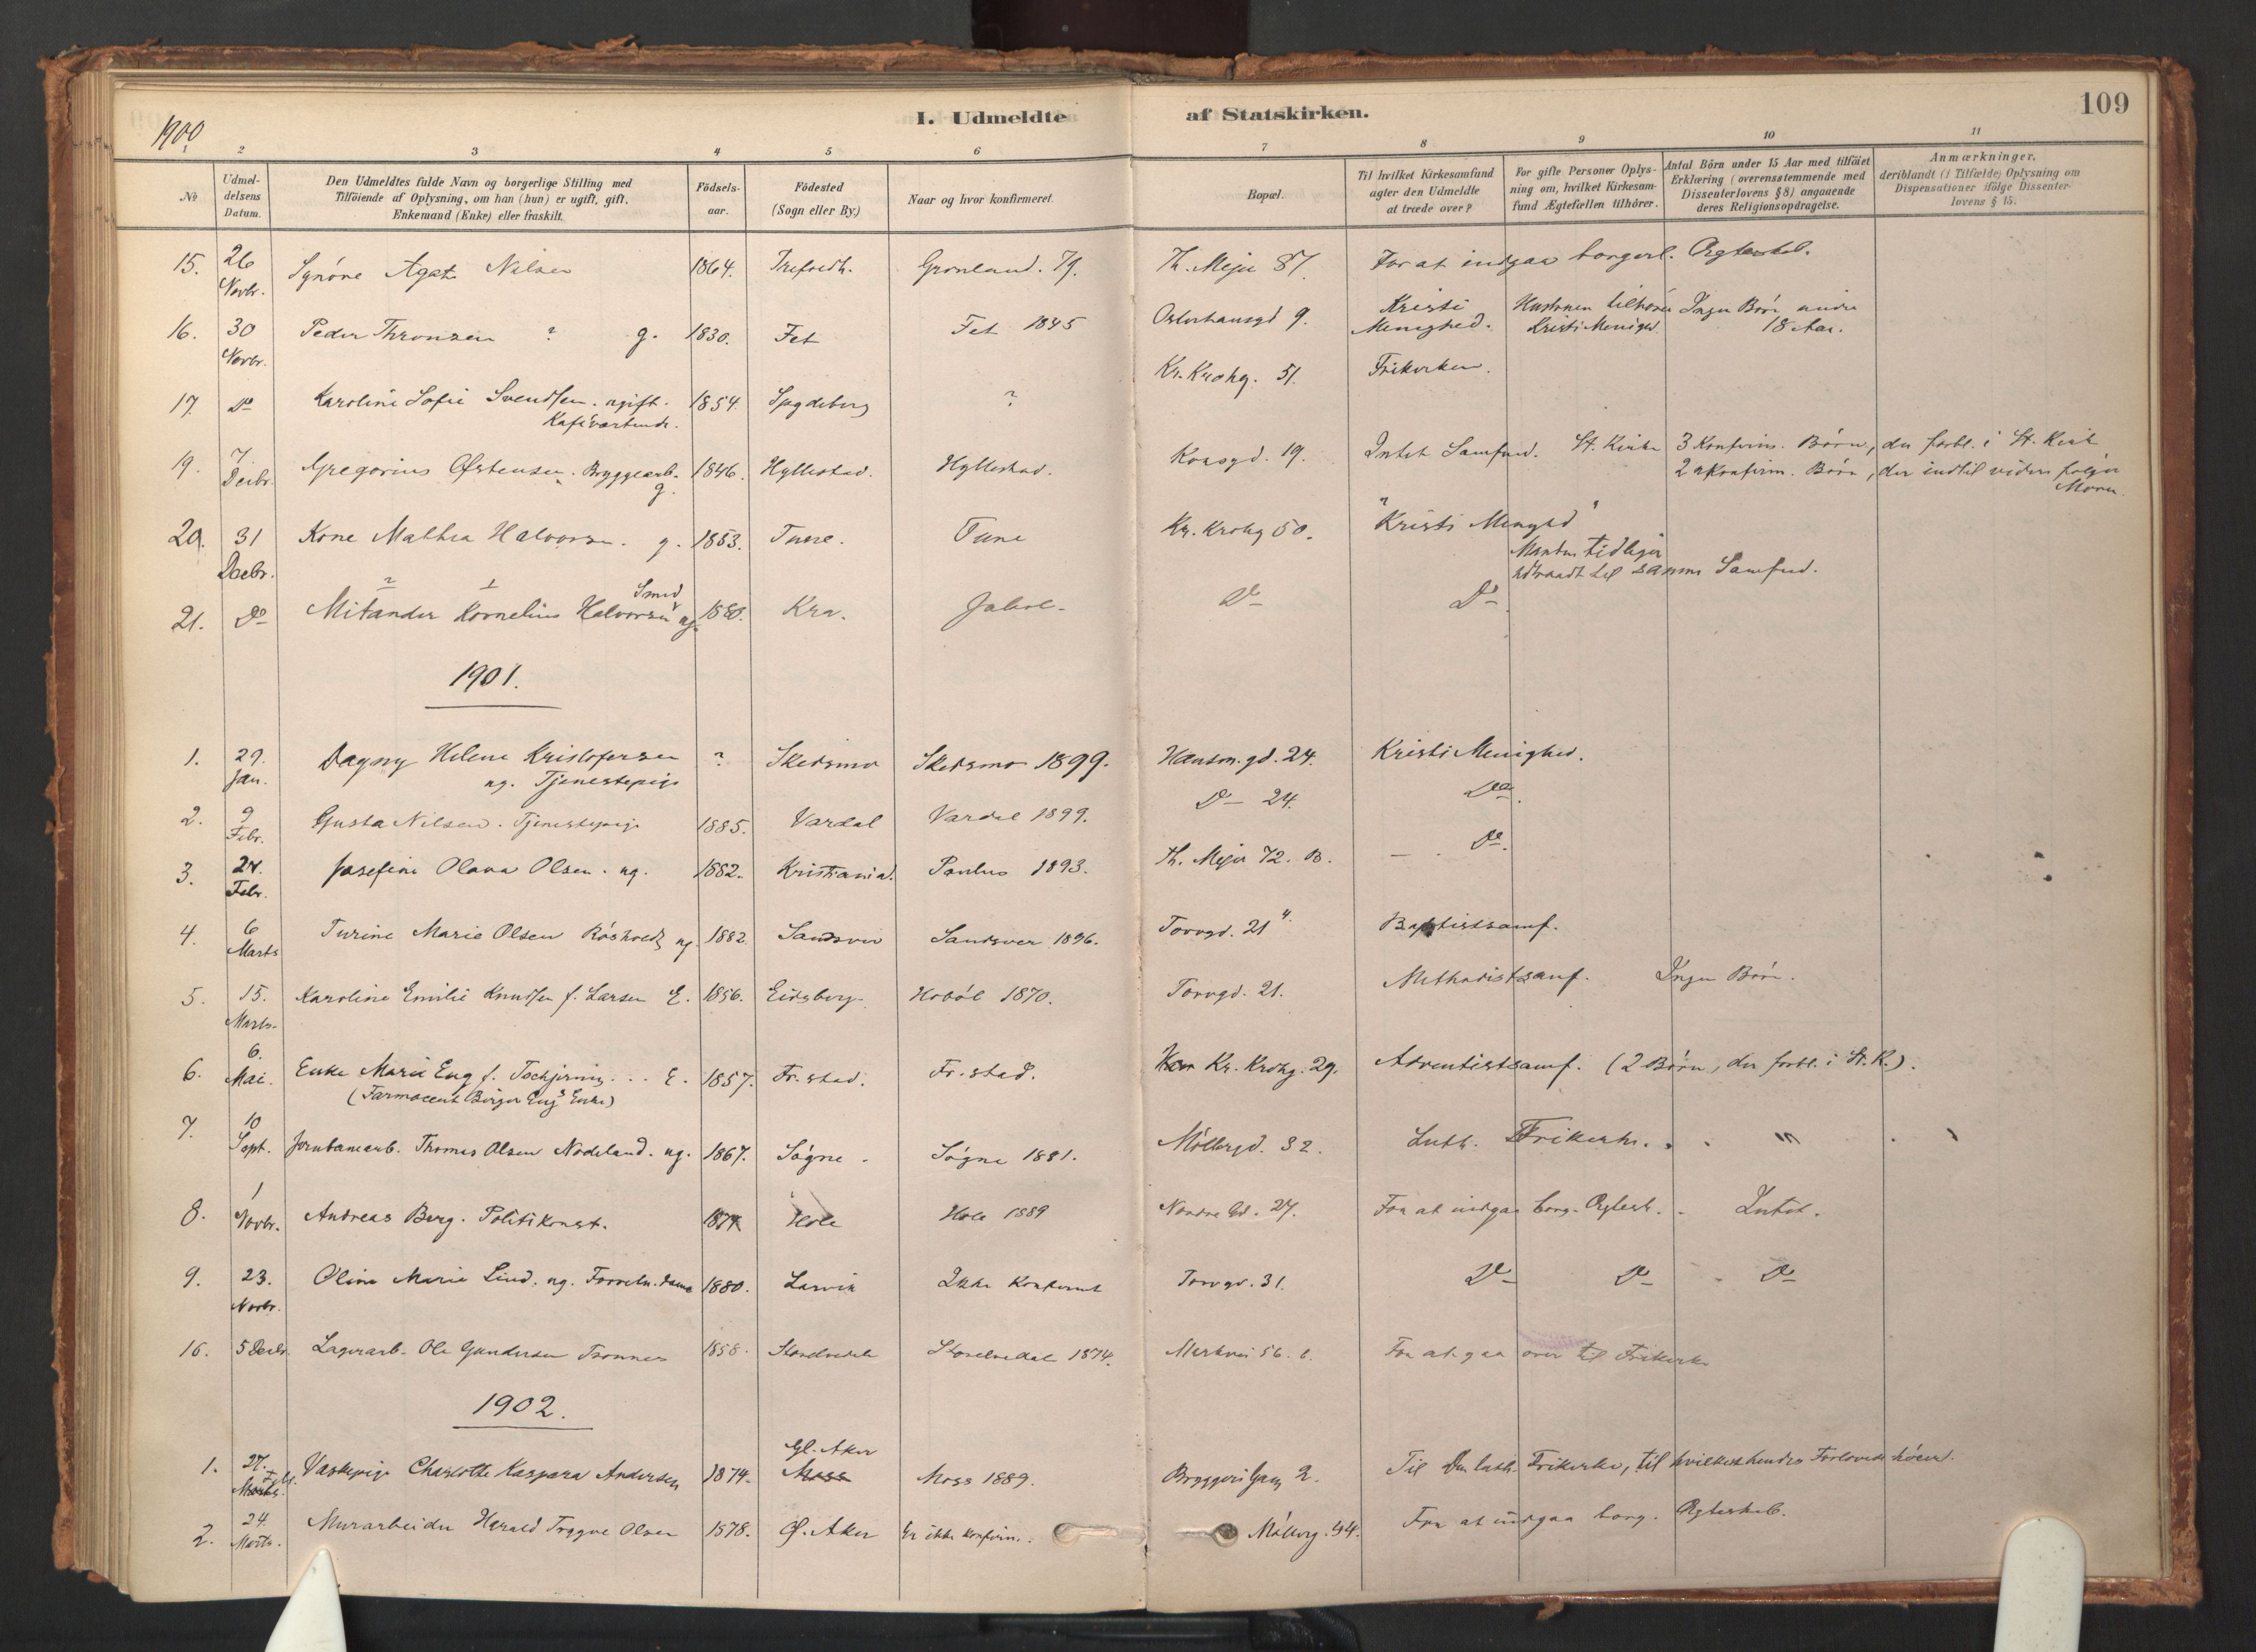 1900
I. Udmeldte af Statskirken. 109
1 2 3 4 5 6 7 8 9 10 11
No
Udmeldelsens Datum.
Den Udmeldtes fulde Navn og borgerlige Stilling med Tilföiende af Oplysning, om han (hun) er ugift, gift, Enkemand (Enke) eller fraskilt.
Födselsaar.
Födested (Sogn eller By.)
Naar og hvor konfirmeret.
Bopæl.
Til hvilket Kirkesamfund agter den Udmeldte at træde over?
For gifte Personer Oplysning om, hvilket Kirkesamfund Ægtefællen tilhörer.
Antal Börn under 15 Aar med tilföiet Erklæring (overensstemmende med Dissenterlovens § 8) angaaende deres Religionsopdragelse.
Anmærkninger, deriblandt (i Tilfælde) Oplysning om Dispensationer ifölge Dissenterlovens § 15.
15. 26 Novbr. Synöve Agate Nilsen 1864. Grönland. 79. Th. Meje 87. For at indgaa borgerl. Ægtesk.
16. 30 Novbr. Peder Thronsen ? g. 1830. Fet Fet 1845 Osterhausgd 9. Kristi Menighed. Hustruen tilhörer Kristi Menighed. Ingen Börn under 18 Aar.
17. Do Karoline Sofie Svendsen. ugift. Kaféværtinde. 1854. Spydeberg ? Kr. Krohg. 51. Frikirken.
19. 7. Decbr. Gregorius Østensen. Bryggearb. g. 1846. Hyllestad. Hyllestad. Korsgd. 19. Intet Samfund. St. Kirke 3 Konfirm. Börn, der forbl. i St. Kirk
2 ukonfirm. Börn, der indtil videre fölger Moren.
20. 31 Decbr. Kone Mathea Halvorsen. g. 1853. Tune. Tune Kr. Krohg 50. "Kristi Menighed"
Manden tidligere udtraadt til samme Samfund.
21. Do Mitander Kornelius Halvorsen Smed ug. 1880. Kra. Jakob. Do Do
1901.
1. 29. Jan. Dagny Helene Kristofersen ug. Tjenestepige ? Skedsmo Skedsmo 1899. Hausm. gd. 24. Kristi Menighed.
2. 9 Febr. Gusta Nilsen. Tjenestepige 1885. Vardal Vardal 1899. Do 24. Do.
3. 24. Febr. Josefine Olava Olsen. ug. 1882. Kristiania. Paulus 1893. Th. Mejer 72. B. Do.
4. 6 Marts Turine Marie Olsen ug 1882. Sandsvær Sandsver 1896. Torvgd. 21 4. Baptistsamf.
5. 15. Marts. Karoline Emilie Knudsen f. Larsen E. 1856. Eidsberg. Hobøl 1870. Torvgd. 21. Methodistsamf. Ingen Börn.
6. 6. Mai. Enke Marie Eng f. Tschjerning . . . E. 1857. Fr.stad. Fr.stad. Kr. Krohg. 29. Adventistsamf. (2 Börn, der forbl. i St. K.).
(Farmaceut Birger Engs Enke)
7. 10 Sept. Jernbanearb. Thomas Olsen Nodeland. ug. 1867. Søgne. Søgne 1881. Møllergd. 32. Luth. Frikirke. "
8. 1 Novbr. Andreas Berg. Politikonst. 1874 Hole Hole 1889 Nordre Gd. 27. For at indgaa borg. Ægtesk. Intet.
9. 23. Novbr. Oline Marie Lind. ug. Forretn. dame 1880. Larvik Ikke Konfirmt Torvgd. 31. Do Do Do
16. 5 Decbr. Lagerarb. Ole Gundersen Tronnes 1858. Storelvedal Storelvedal 1874. Markvei 56. b. For at gaa over til Frikirke
1902.
1. 27. Febr. Vaskepige Charlotte Kaspara Andersen 1874. Gl. Aker Moss 1889. Bryggeri Gang 2. Til Den luth. Frikirke, til hvilket hendes Forlovede hörer.
2. 24. Marts. Murarbeider Harald Trygve Olsen 1878. G. Aker Er ikke konfirm. Møllerg. 44. For at indgaa borg. Ægteskab.